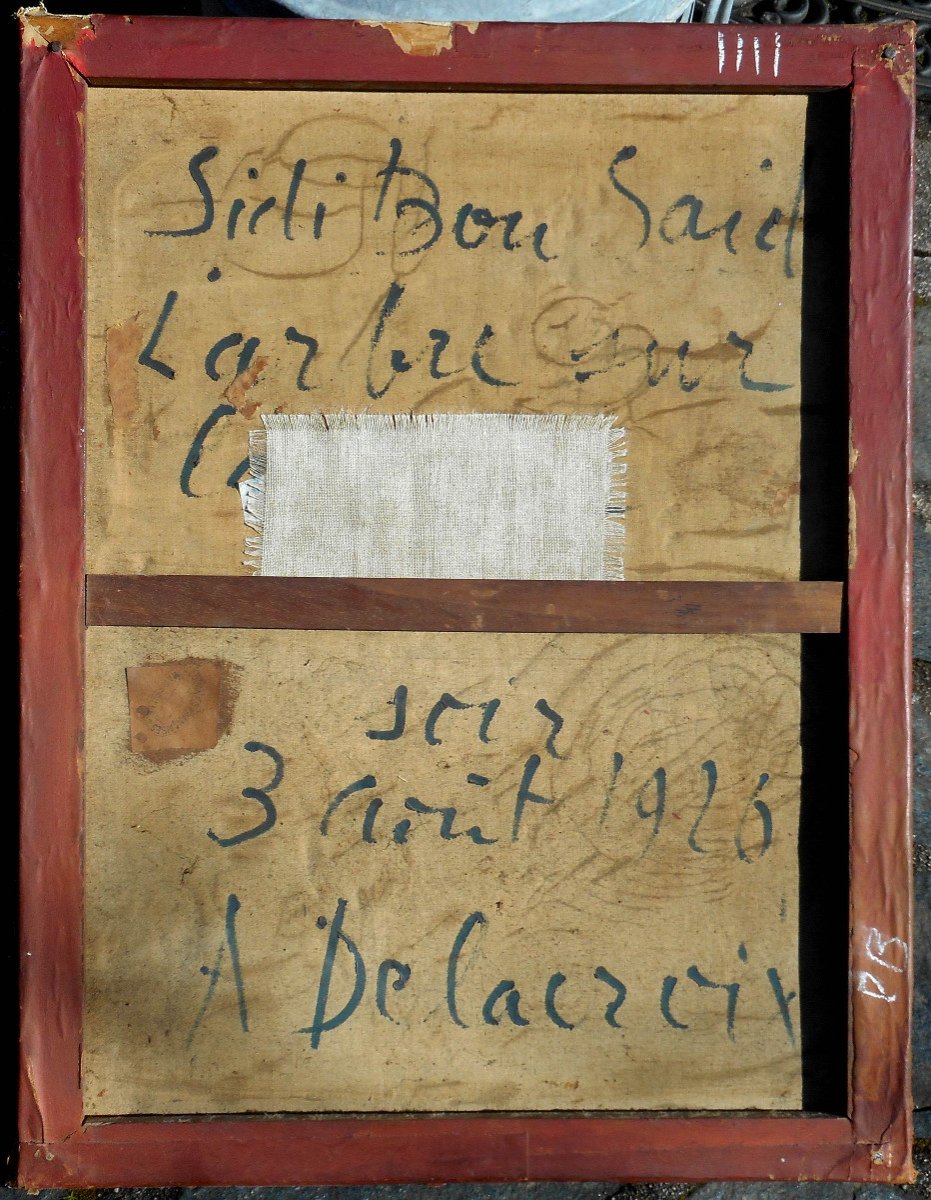 Sidi Bou Said
L'arbre sur
soir
3 août 1926
A Delacroix
PB